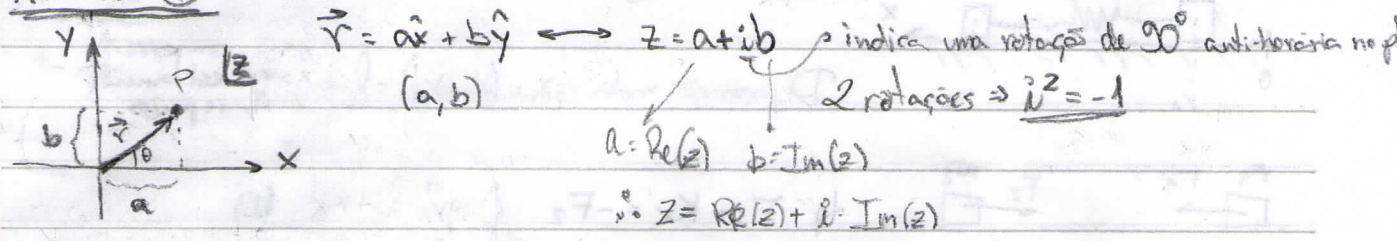 y
r⃗ = ax̂ + bŷ ⟷ z = a + ib indica uma rotação de 90° anti-horária no p
P z
(a,b) 2 rotações ⇒ i² = -1
b r⃗ θ x
a = Re(z) b = Im(z)
a
∴ z = Re(z) + i · Im(z)